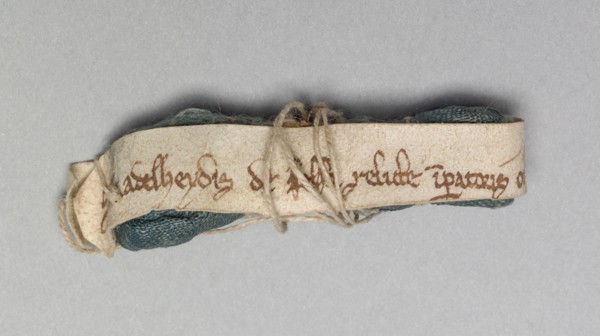 adelheydis de relicte ip̄atoris